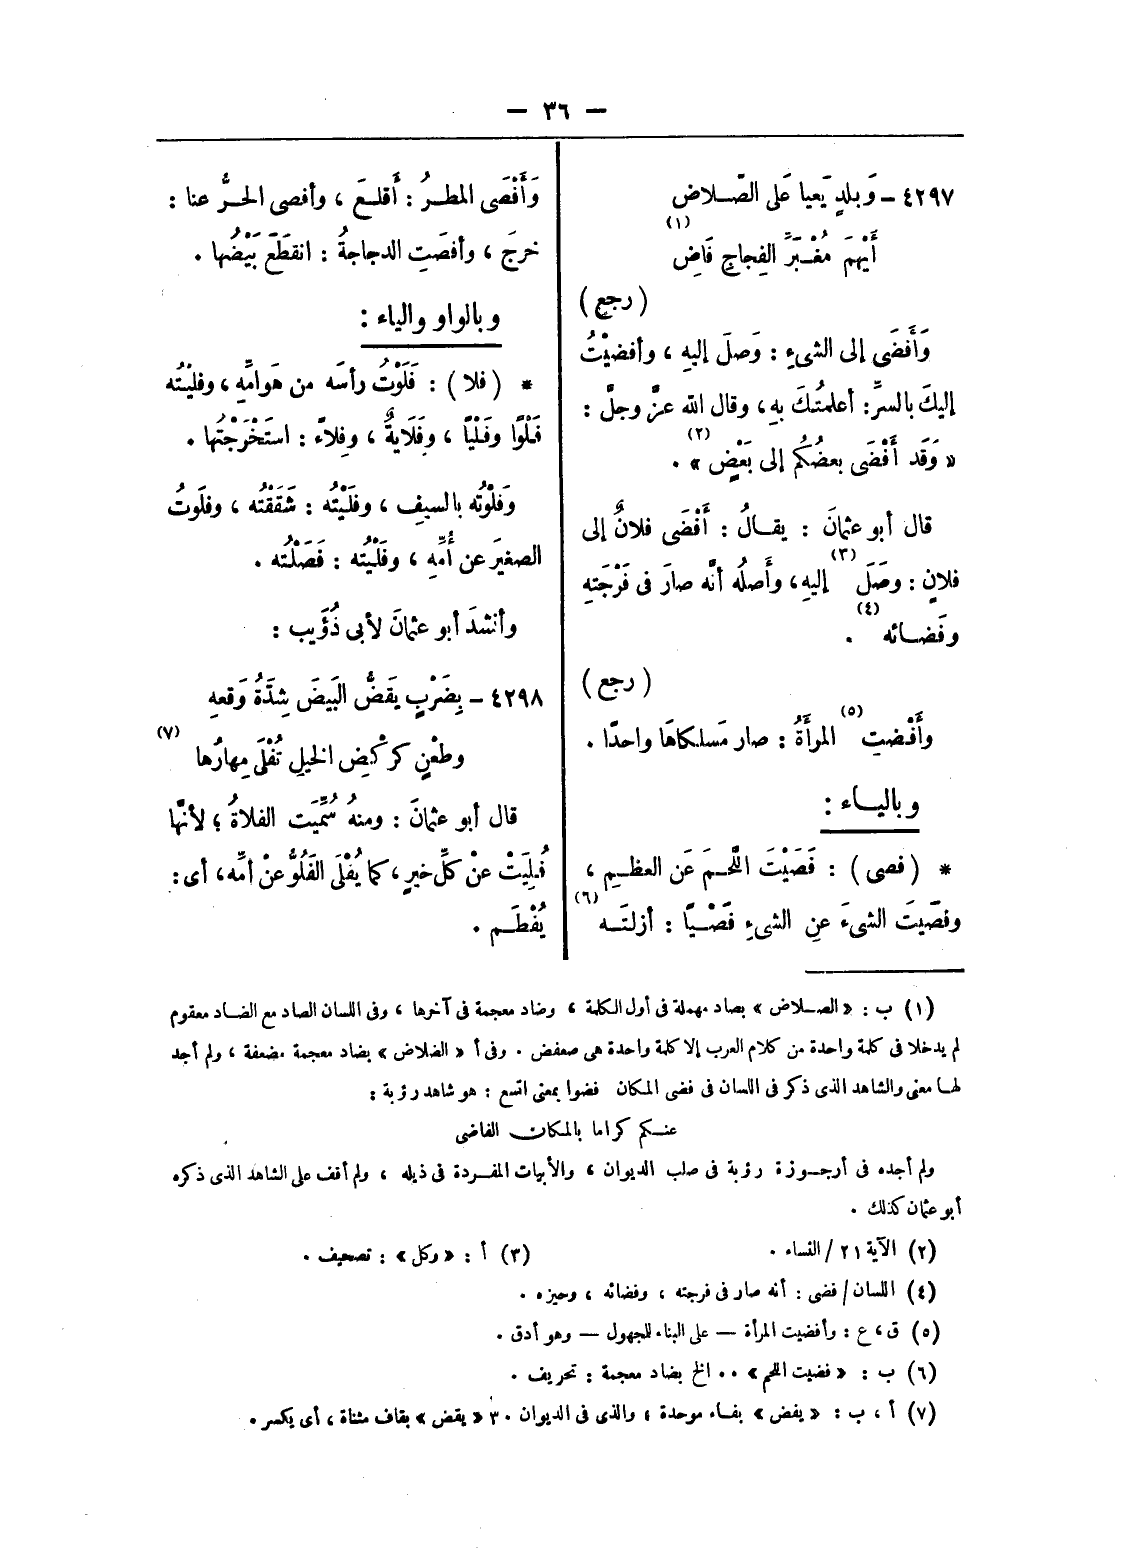 — ٣٦ —
٤٢٩٧ - وَبلدٍ يَعيا عَلى الصّلاض
أَيْهَمَ مُغْبَرَّ الفِجاجِ فَاضِ (١)
( رجع )
وَأَفضَى إلى الشىءِ : وَصلَ إليهِ ، وأفضيْتُ
إليكَ بالسرِّ: أعلمتُكَ بهِ، وقال الله عزَّ وجلَّ :
« وَقَد أَفْضَى بعضُكُم إلى بَعْضٍ » (٢) .
قال أبو عثمانَ : يقالُ : أَفْضَى فلانٌ إلى
فلانٍ : وصَلَ (٣) إليهِ، وأَصلُه أنَّه صارَ فى فَرْجَتهِ
وفَضائه (٤) .
( رجع )
وأَفْضتِ (٥) المرأَةُ : صار مَسلكاهَا واحدًا .
وبالياء :
* ( فصى ) : فَصَيْتَ اللَّحمَ عَن العظمِ ،
وفصّيتَ الشىءَ عنِ الشىءِ فَصْيًا : أزلتَه (٦)
وَأَفْصَى المطرُ : أَقلعَ ، وأفصى الحرُّ عنا :
خرجَ ، وأفصَتِ الدجاجةُ : انقطَعَ بَيْضُها .
وبالواو والياء :
* ( فلا ) : فَلَوْتُ رأسَه من هَوامِّهِ ، وفليْتُه
فَلْوًا وفَلْيًا ، وفَلَايةً ، وفِلاءً : استَخْرَجْتُها .
وَفلوْتُه بالسيفِ ، وفلَيْتُه : شَقَقْتُه ، وفلَوتُ
الصغيَر عن أُمِّهِ ، وفَلَيْتُه : فَصَلْتُه .
وأنشدَ أبو عثمانَ لأبى ذُؤَيب :
٤٢٩٨ - بِضَرْبٍ يَقضُّ البَيضَ شِدَّةُ وَقعهِ
وطعْنٍ كركْضِ الخيلِ تُفْلَى مِهارُها (٧)
قال أبو عثمانَ : ومنهُ سُمِّيَت الفلاةُ ؛ لأنَّها
فُلِيَتْ عنْ كلِّ خيرٍ ، كما يُفْلَى الفَلُوُّ عنْ أمِّه، أى :
يُفْطَم .
(١) ب : « الصلاض » بصاد مهملة فى أول الكلمة ، وضاد معجمة فى آخرها ، وفى اللسان الصاد مع الضاد معقوم
لم يدخلا فى كلمة واحدة من كلام العرب إلا كلمة واحدة هى صعفض . وفى أ « الضلاض » بضاد معجمة مضعفة ، ولم أجد
لها معنى والشاهد الذى ذكر فى اللسان فى فضى المكان فضوا بمعنى اتسع : هو شاهد رؤبة :
عنكم كراما بالمكان الفاضى
ولم أجده فى أرجوزة رؤبة فى صلب الديوان ، والأبيات المفردة فى ذيله ، ولم أقف على الشاهد الذى ذكره
أبو عثمان كذلك .
(٢) الآية ٢١ / النساء . (٣) أ : « وكل » : تصحيف .
(٤) اللسان / فضى : أنه صار فى فرجته ، وفضائه ، وحيزه .
(٥) ق ، ع : وأفضيت المرأة — على البناء للجهول — وهو أدق .
(٦) ب : « فضيت اللحم » .. الخ بضاد معجمة : تحريف .
(٧) أ ، ب : « يفض » بفاء موحدة ؛ والذى فى الديوان ٣٠ « يقض » بقاف مثناة ، أى يكسر .